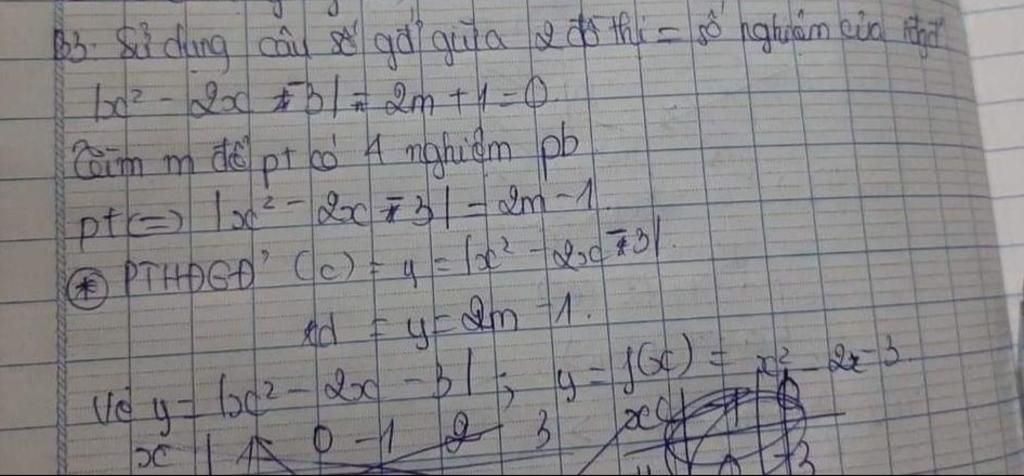 B3. Sử dụng câu số gđ giữa 2 đồ thị = số nghiệm của
|x² - 2x - 3| - 2m + 1 = 0
Tìm m để pt có 4 nghiệm pb
pt (=) |x² - 2x - 3| = 2m - 1
* PTHĐGĐ (c) = y = |x² - 2x - 3|.
d = y = 2m - 1.
Vẽ y = |x² - 2x - 3| ; y = f(x) = x² - 2x - 3.
x | 0 - 1 2 3